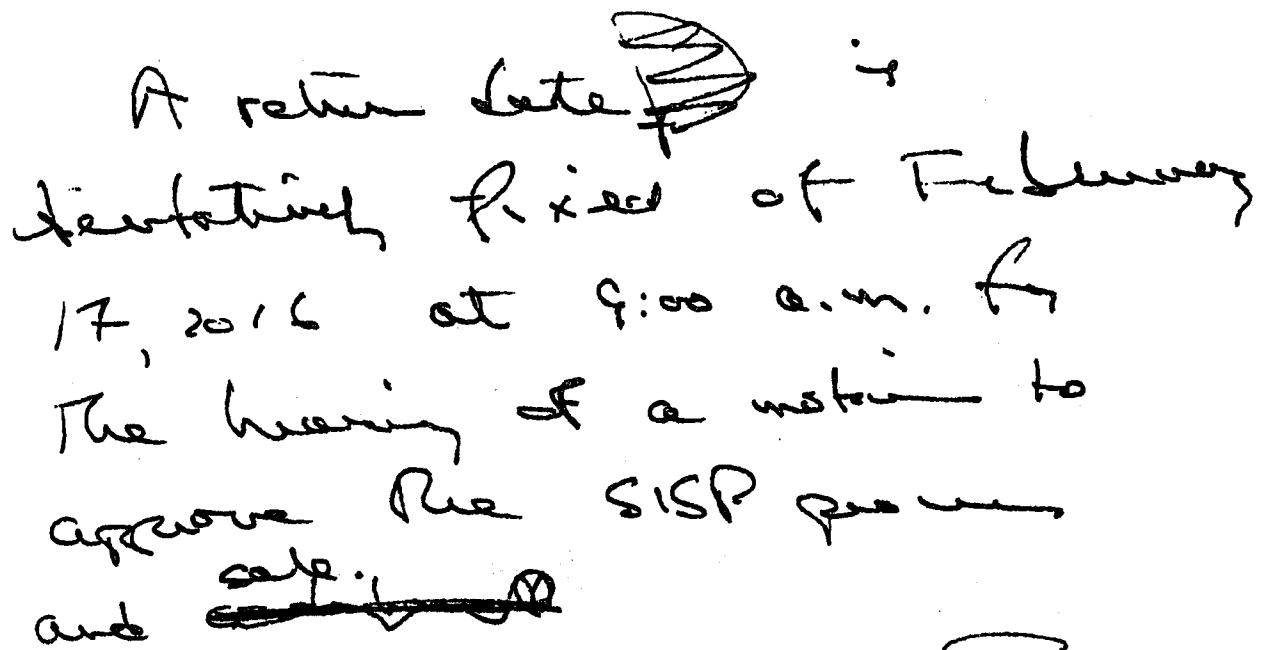 A return date is
tentatively fixed of February
17, 2016 at 9:00 a.m. for
the hearing of a motion to
approve the SISP process
sale.
and